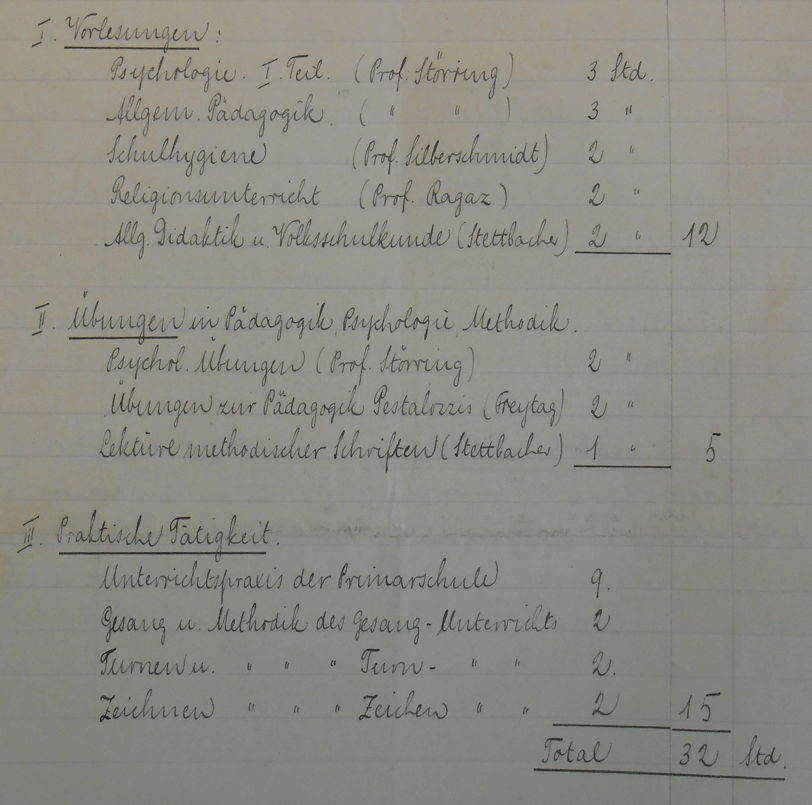 I. Vorlesungen:
Psychologie. I. Teil. (Prof. Störring) 3 Std.
Allgem. Pädagogik. ( " " ) 3 "
Schulhygiene (Prof. Silberschmidt) 2 "
Religionsunterricht (Prof. Ragaz) 2 "
Allg. Didaktik u. Volksschulkunde (Stettbacher) 2 " 12
II. Übungen in Pädagogik, Psychologie, Methodik.
Psychol. Übungen (Prof. Störring) 2 "
Übungen zur Pädagogik Pestalozzis (Freytag) 2 "
Lektüre methodischer Schriften (Stettbacher) 1 " 5
III. Praktische Tätigkeit.
Unterrichtspraxis der Primarschule 9.
Gesang u. Methodik des Gesang-Unterrichts 2
Turnen u. " " " Turn- " " 2.
Zeichnen " " " Zeichen " " 2 15
Total 32 Std.